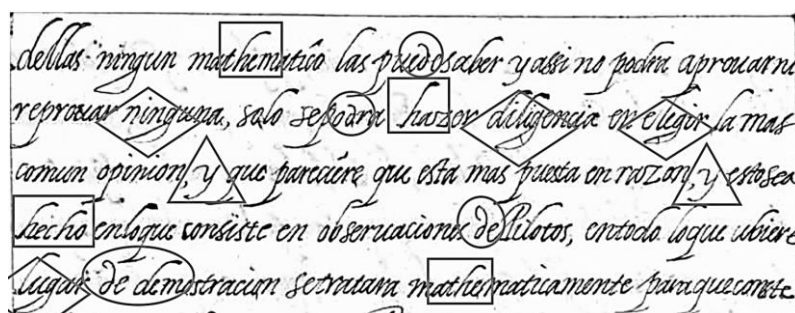 dellas ningun mathematico las puedo saber y assi no podra aprouar ni
reprouar ninguna, solo se podra haszer diligencia en elegir la mas
comun opinion, y que pareciere que esta mas puesta en razon, y esto sea
hecho en lo que consiste en obseruaciones de Pilotos, en todo lo que ubiere
lugar de demostracion se tratara mathematicamente para que conste